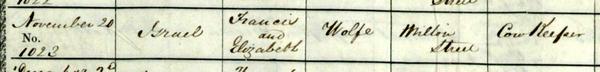 November 20
No.
1023
Israel
Francis
and
Elizabeth
Wolfe
Milton
Street
Cow Keeper